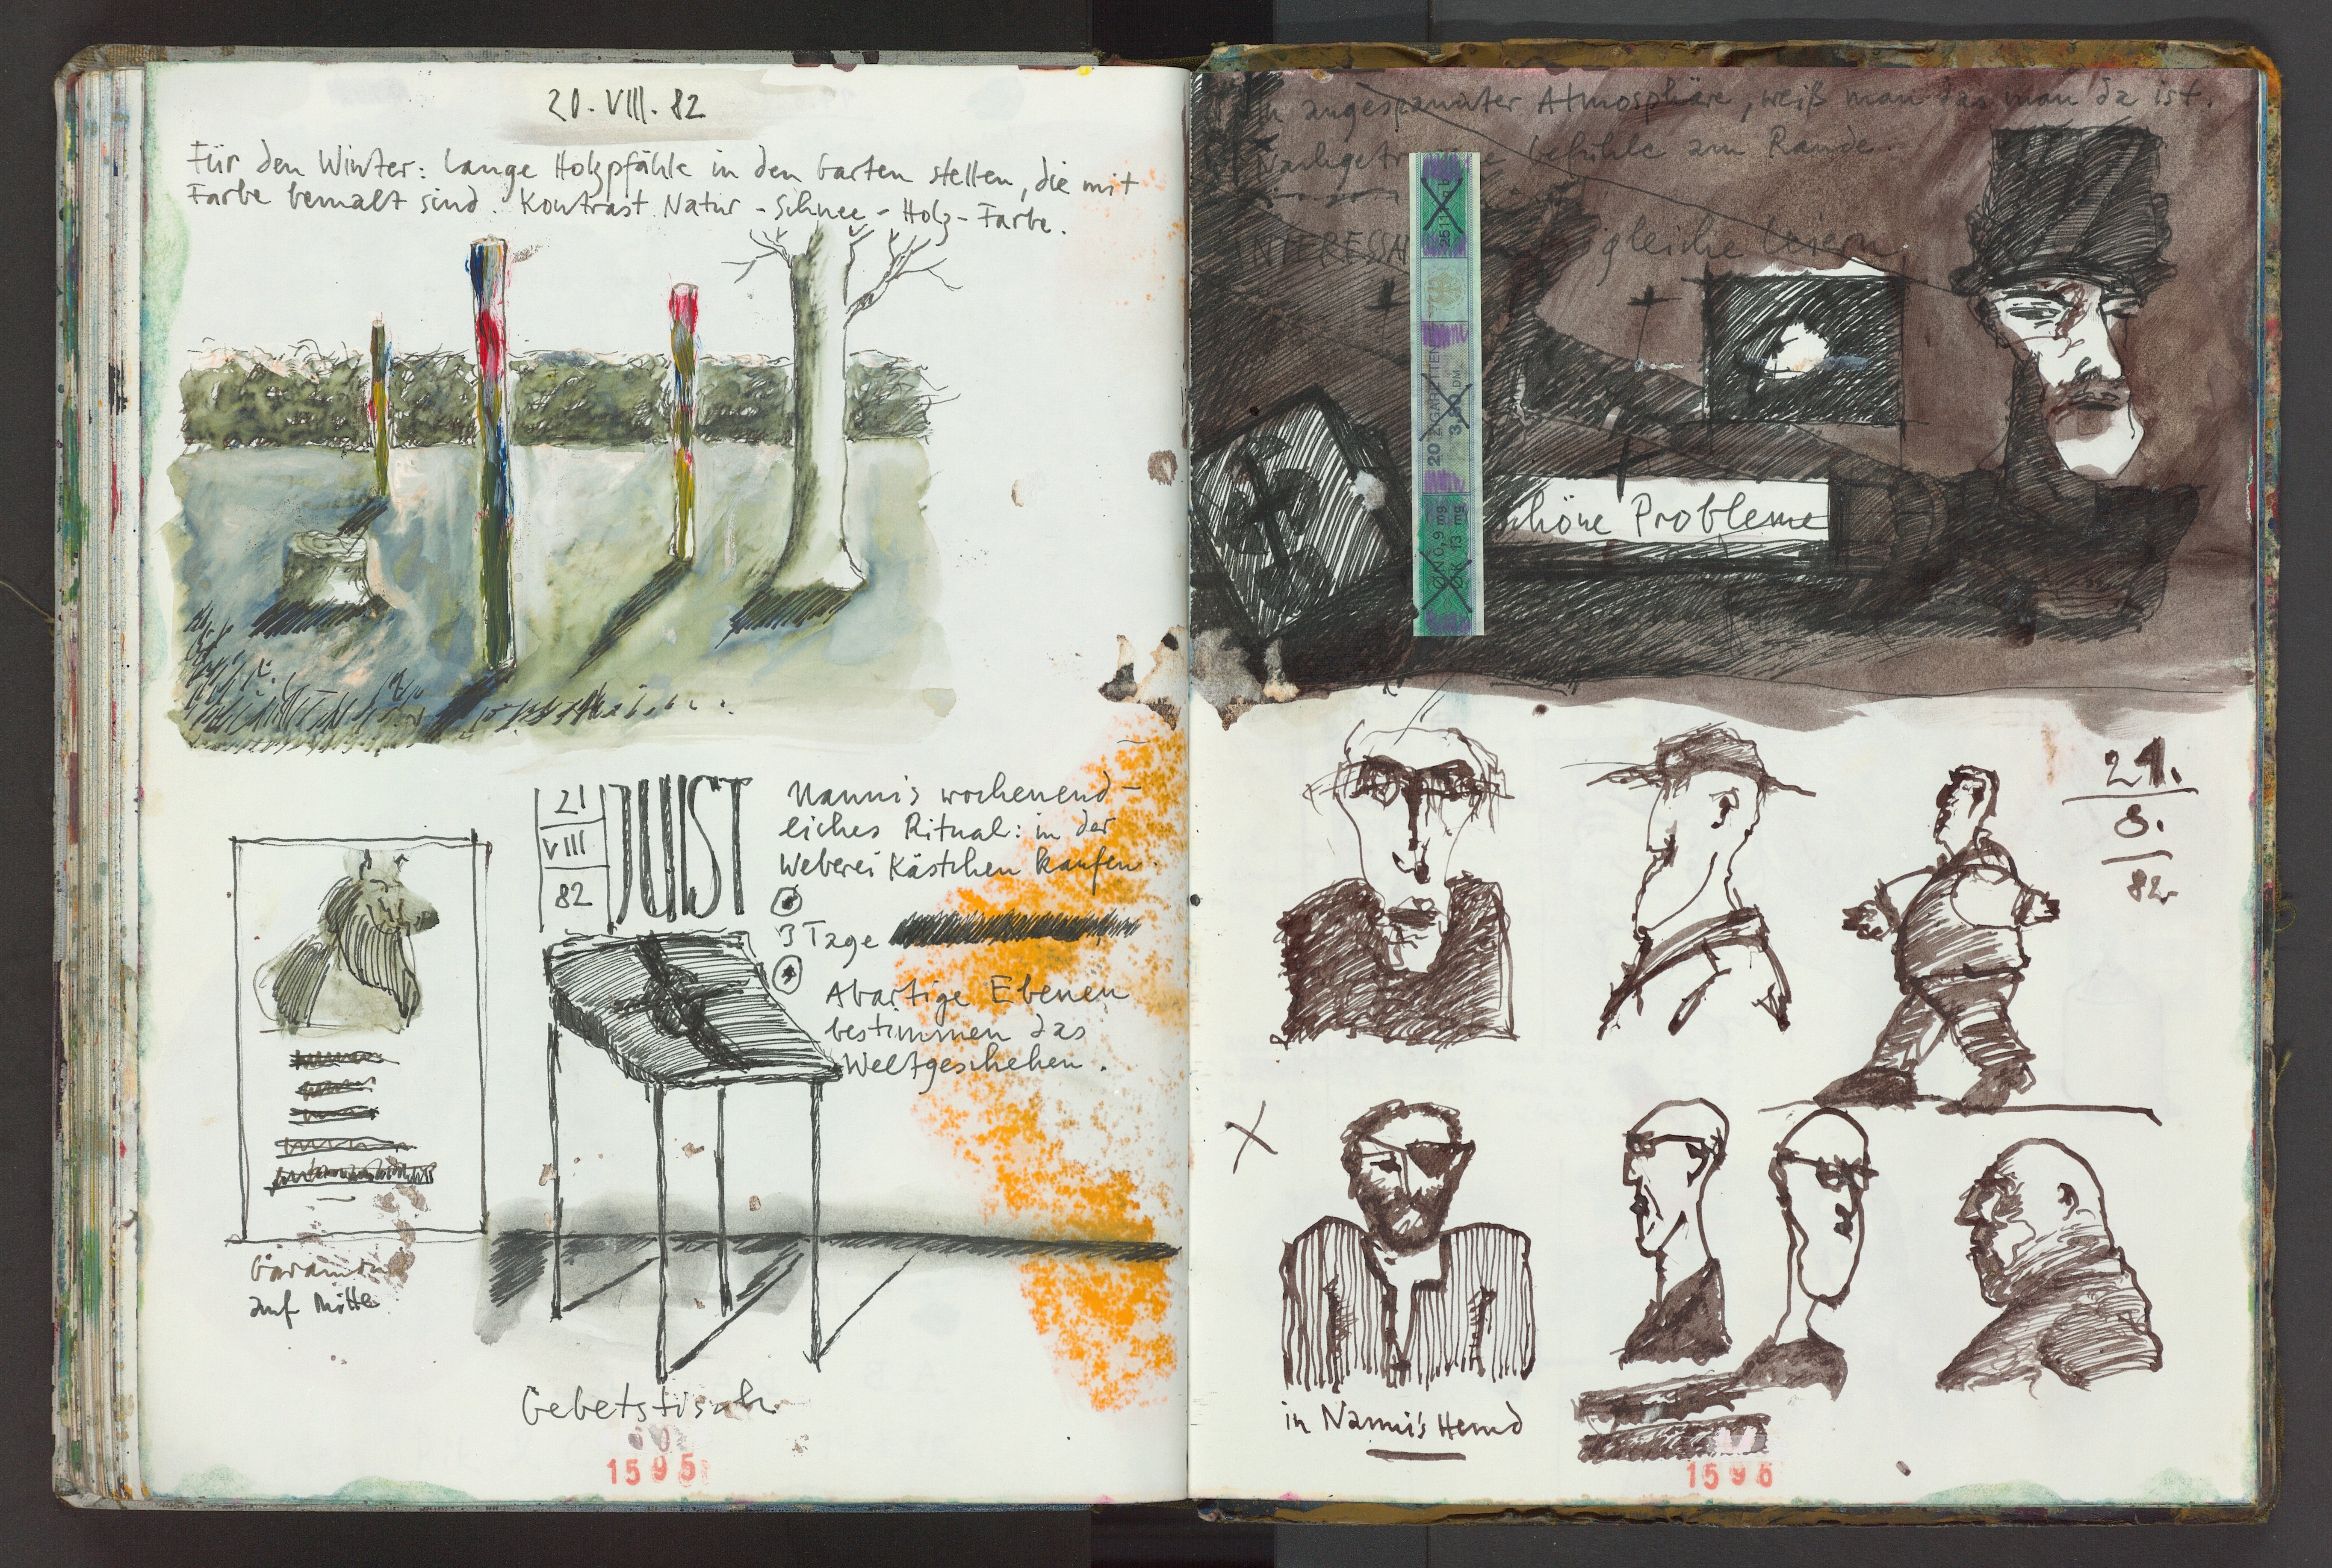 20. VIII. 82
Für den Winter: Lange Holzpfähle in den Garten stellen, die mit
Farbe bemalt sind. Kontrast Natur - Schnee - Holz - Farbe.
21
VIII
82
JUIST
Nanni's wochenend-
liches Ritual: in der
Weberei Kästchen kaufen.
3 Tage
Abartige Ebenen
bestimmen das
Weltgeschehen.
auf Mitte
Gebetstisch
1595
angespannter Atmosphäre, weiß man das man da ist.
Gefühle am Rande.
gleiche
2511
20 ZIGARETTEN
3,80 DM
N 0,9 mg
K 13 mg
höne Probleme
21.
8.
82
in Nanni's Hemd
1596